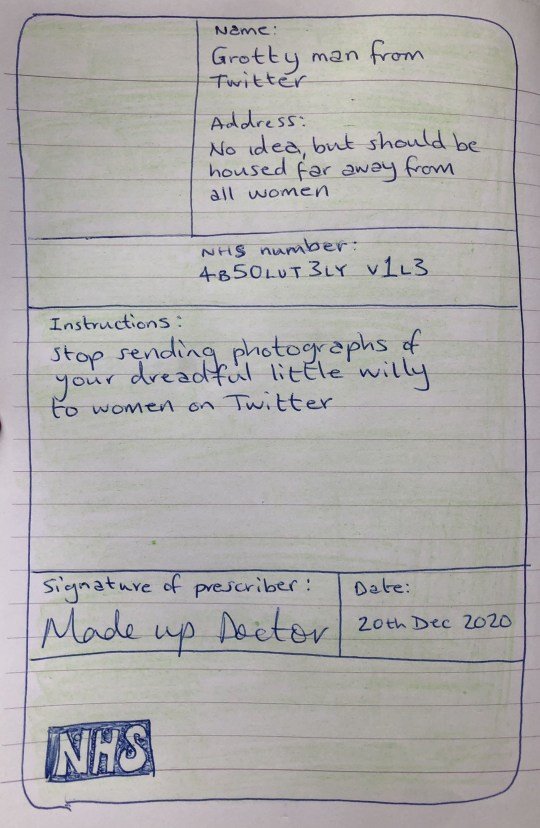 Name:
Grotty man from
Twitter
Address:
No idea, but should be
housed far away from
all women
NHS number:
4B50LUT3LY V1L3
Instructions:
Stop sending photographs of
your dreadful little willy
to women on Twitter
Signature of prescriber:
Made up Doctor
Date:
20th Dec 2020
NHS